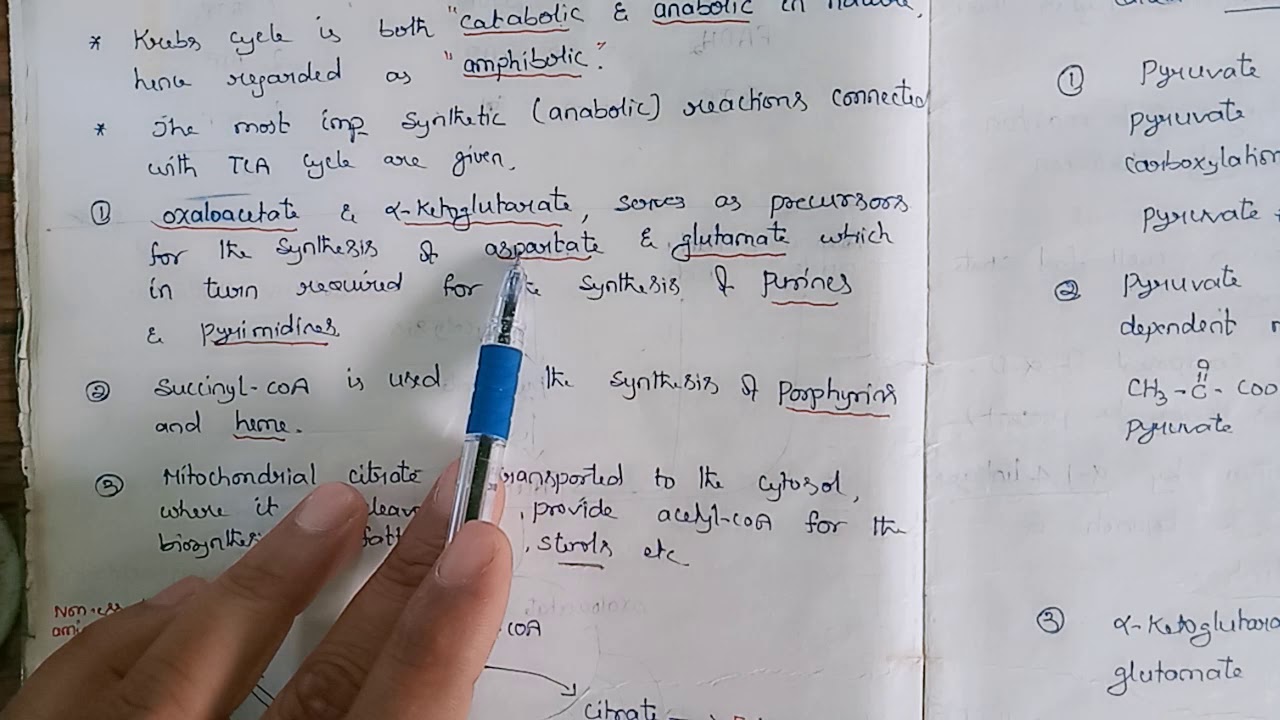 * Krebs cycle is both "catabolic & anabolic in nature,
hence regarded as "amphibolic".
* The most imp synthetic (anabolic) reactions connected
with TCA cycle are given.
① oxaloacetate & α-Ketoglutarate, serves as precursors
for the synthesis of aspartate & glutamate which
in turn required for synthesis of purines
& pyrimidines
② Succinyl-CoA is used the synthesis of porphyrins
and heme.
③ Mitochondrial citrate transported to the cytosol,
where it , provide acetyl-CoA for the
, sterols etc
CoA
citrate
① Pyruvate
pyruvate
carboxylation
pyruvate
② Pyruvate
dependent
O
CH3-C-COO
pyruvate
③ α-Ketoglutara
glutamate